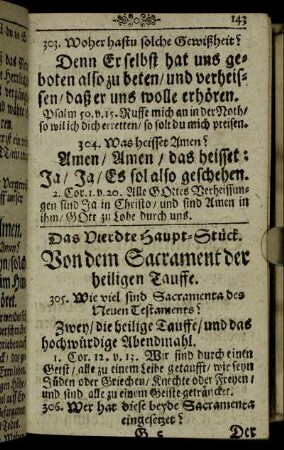 143
303. Woher hastu solche Gewißheit?
Denn Er selbst hat uns ge-
boten also zu beten/ und verheis-
sen/ daß er uns wolle erhören.
Psalm 50. v. 15. Ruffe mich an in der Noth/
so wil ich dich erretten/ so solt du mich preisen.
304. Was heisset Amen?
Amen/ Amen/ das heisset:
Ja/ Ja/ Es sol also geschehen.
2. Cor. 1. v. 20. Alle GOttes Verheissun-
gen sind Ja in Christo/ und sind Amen in
ihm/ GOtt zu Lobe durch uns.
Das Vierdte Haupt-Stück.
Von dem Sacrament der
heiligen Tauffe.
305. Wie viel sind Sacramenta des
Neuen Testaments?
Zwey/ die heilige Tauffe/ und das
hochwürdige Abendmahl.
1. Cor. 12. v. 13. Wir sind durch einen
Geist/ alle zu einem Leibe getaufft/ wir seyn
Jüden oder Griechen/ Knechte oder Freyen/
und sind alle zu einem Geiste geträncket.
306. Wer hat diese beyde Sacramenta
eingesetzet?
G 5 Der